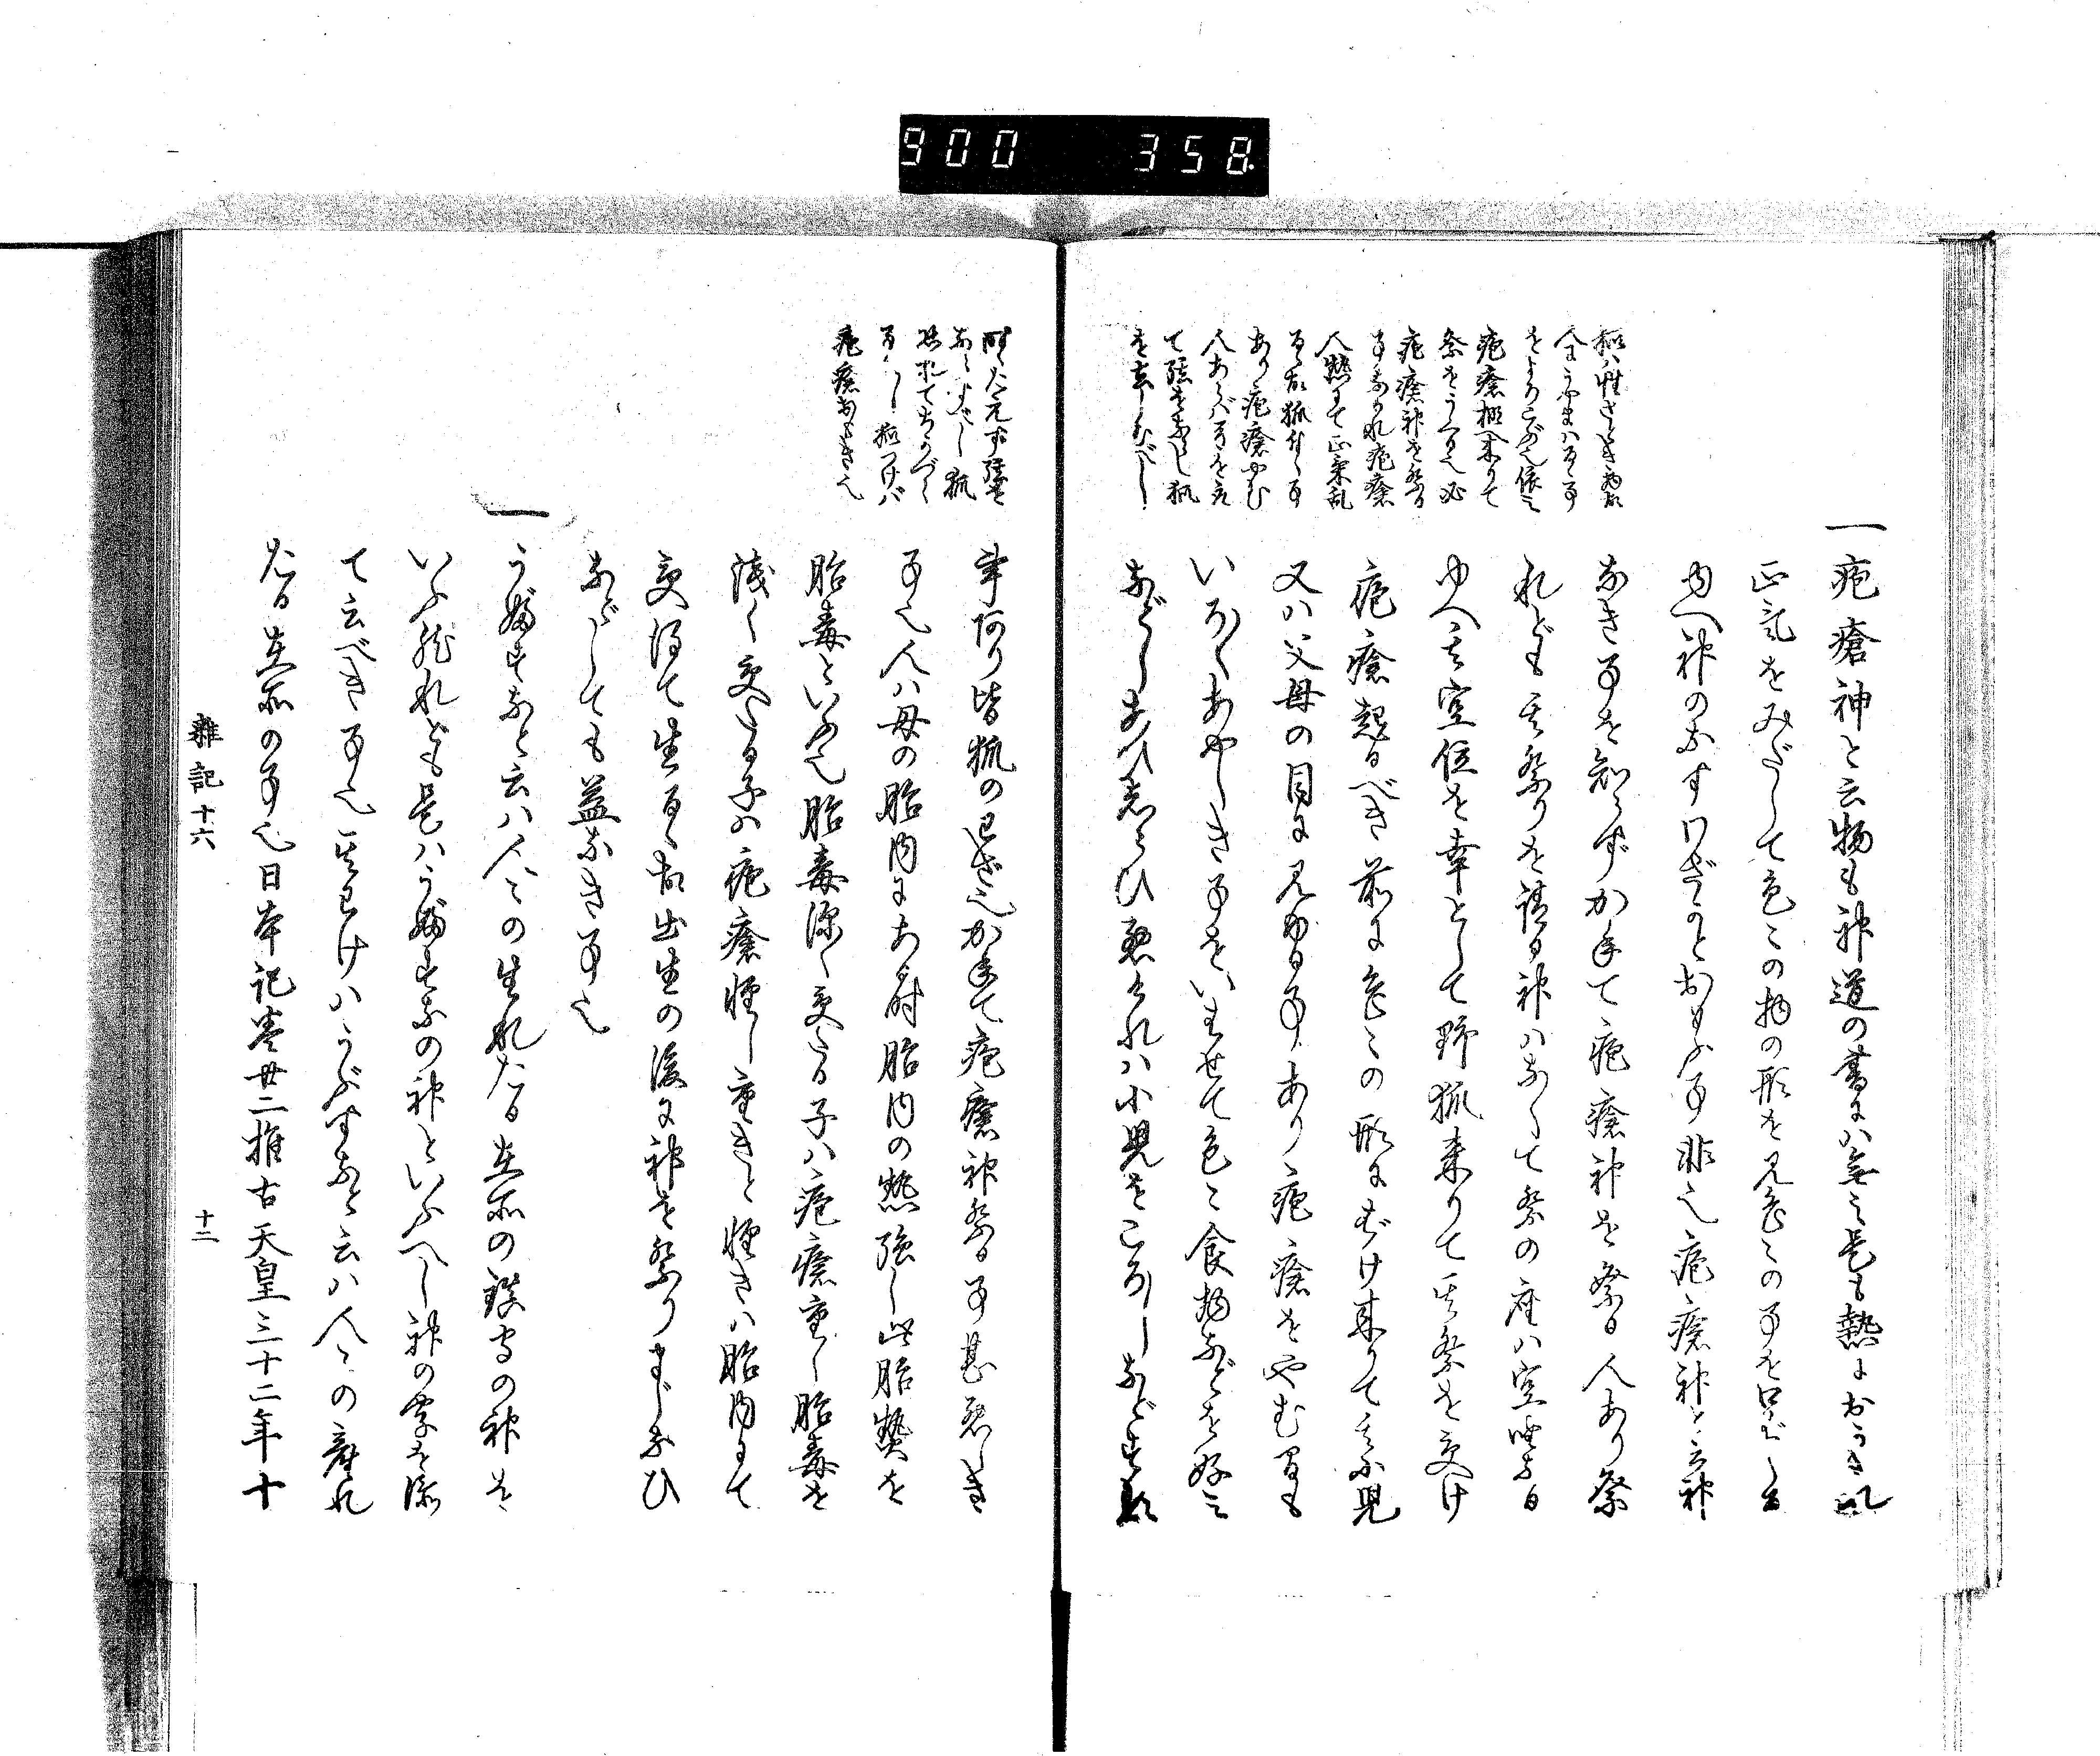 900 358
狐ハ性さとき故
人にうやまハるゝ事
をよろこぶ也依之
疱瘡棚へ来りて
祭をうくる也必
疱瘡神を祭る
事なかれ疱瘡
人熱にて正氣乱
るゝ故狐付く事
あり疱瘡やむ
人あらバ弓を立
て弦をならし狐
を去らしむべし
一疱瘡神と云物も神道の書にハ無之是も熱におうされ
正氣をみだして色々の物の形を見色々の事を口ばしる
ゆへ神のなすわざかとおもふ事非也疱瘡神と云神
なき事を知らずかまへて疱瘡神を祭る人あり祭
れども其祭りを請る神ハなくて祭の座ハ空坐なる
ゆへ其空位を幸として野狐来りて其祭を受け
疱瘡起るべき前に色々の形にばけ来りて其小児
又ハ父母の目に見ゆる事あり疱瘡をやむ間も
いろ〱あやしき事をいわせて色々食物などを好ミ
などしあひしらひ悪けれハ小児をころしなどする類
時々た元ず弦を
ならすべし狐
恐れてちかづく
まじ狐つけバ
疱瘡おもき也
事阿り皆狐のわざ也かまへて疱瘡神祭る事甚悪しき
事也人ハ母の胎内にある時胎内の熱強し此胎熱を
胎毒といふ也胎毒深く受たる子ハ疱瘡重し胎毒を
浅く受たる子ハ疱瘡軽し重きと軽きハ胎内にて
受得て生るゝ故出生の後に神を祭りまじなひ
などしても益なき事也
一うぶすなと云ハ人々の生れたる在所の鎮守の神を
いふ然れども是ハうぶすなの神といふべし神の字を添
て云べき事也其わけハうぶすなと云ハ人々の産れ
たる在所の事也日本記巻廿二推古天皇三十二年十
雑記十六
十二